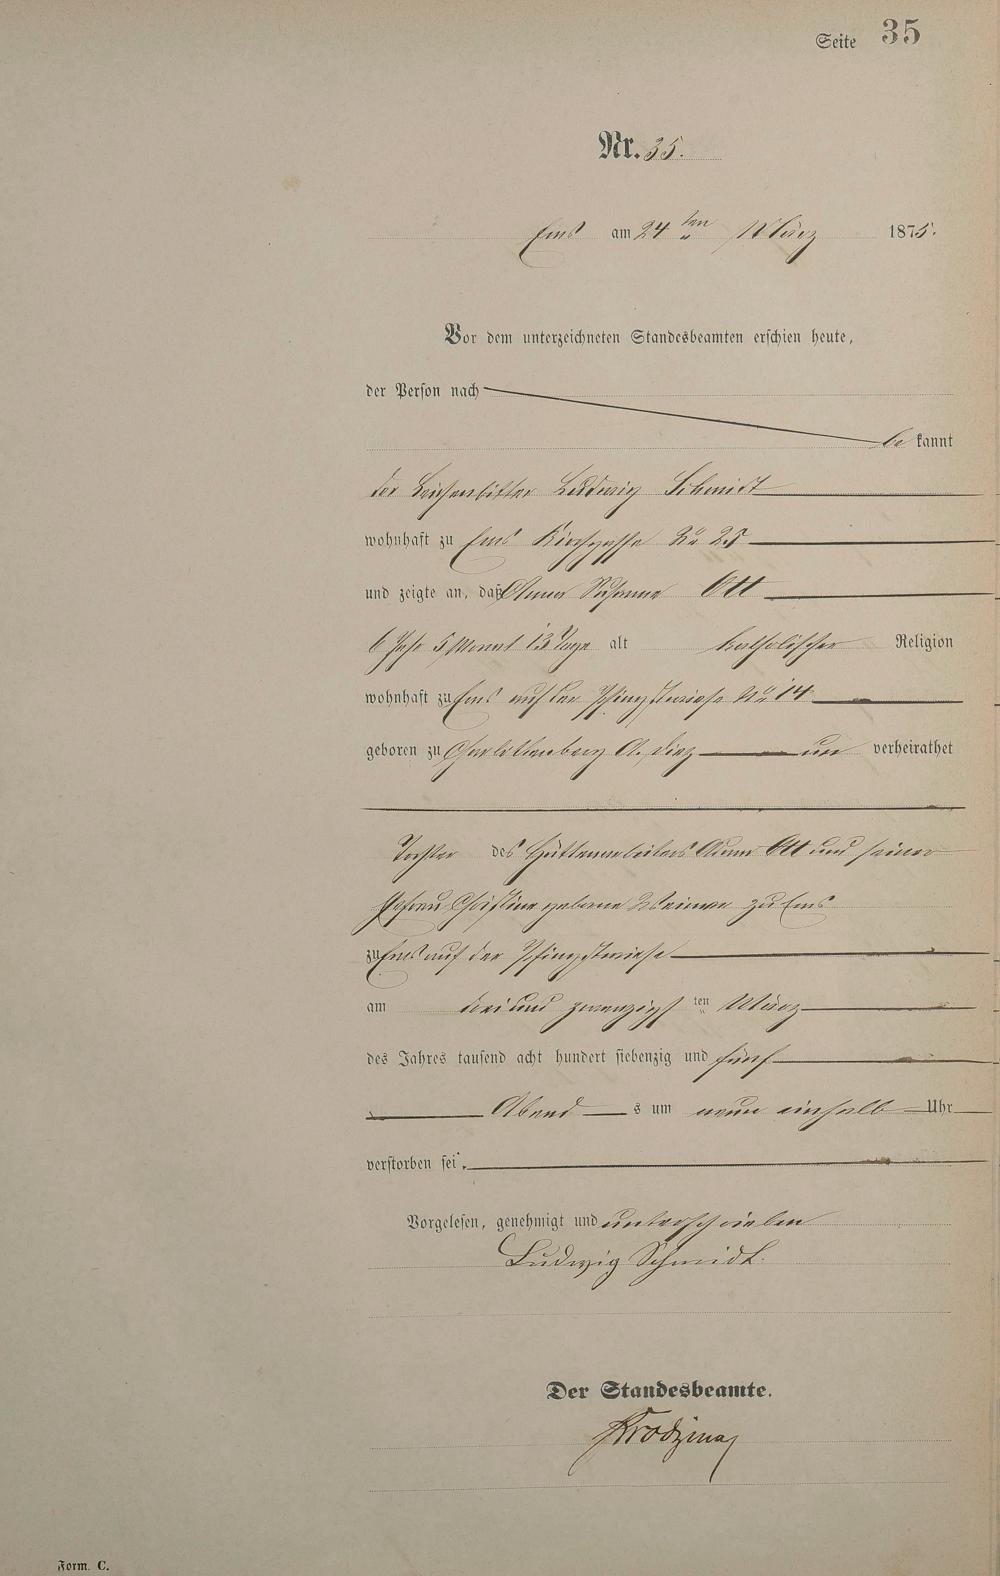 Seite 35
Nr. 35.
Ems am 24 ten März 1875.
Vor dem unterzeichneten Standesbeamten erschien heute,
der Person nach
be kannt
der Leichenbitter Ludwig Schmidt
wohnhaft zu Ems Kirchgasse No 25
und zeigte an, daß Anna Susanna Ott
6 Jahr 5 Monat 13 Tage alt katholischer Religion
wohnhaft zu Ems auf der Pfingstwiese No 14
geboren zu Charlottenberg A. Diez un verheirathet
Tochter des Hüttenarbeiters Ott und seiner
Ehefrau Christine geborne zu Ems
zu Ems auf der Pfingstwiese
am drei und zwanzigst ten März
des Jahres tausend acht hundert siebenzig und fünf
Abend s um neun einhalb Uhr
verstorben sei.
Vorgelesen, genehmigt und unterschrieben
Ludwig Schmidt.
Der Standesbeamte.
Form. C.